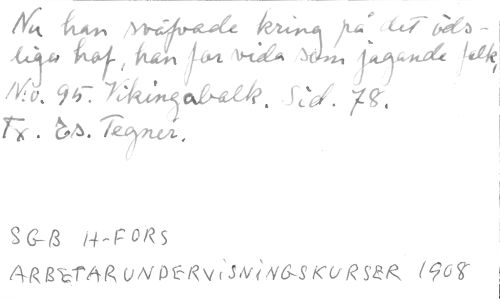 Nu han sväfvade kring på det öds-
liga haf, han for vida som jagande falk,
N:o. 95. Vikingabalk. Sid. 78.
Fx. Es. Tegnér.
SGB H-FORS
ARBETARUNDERVISNINGSKURSER 1908